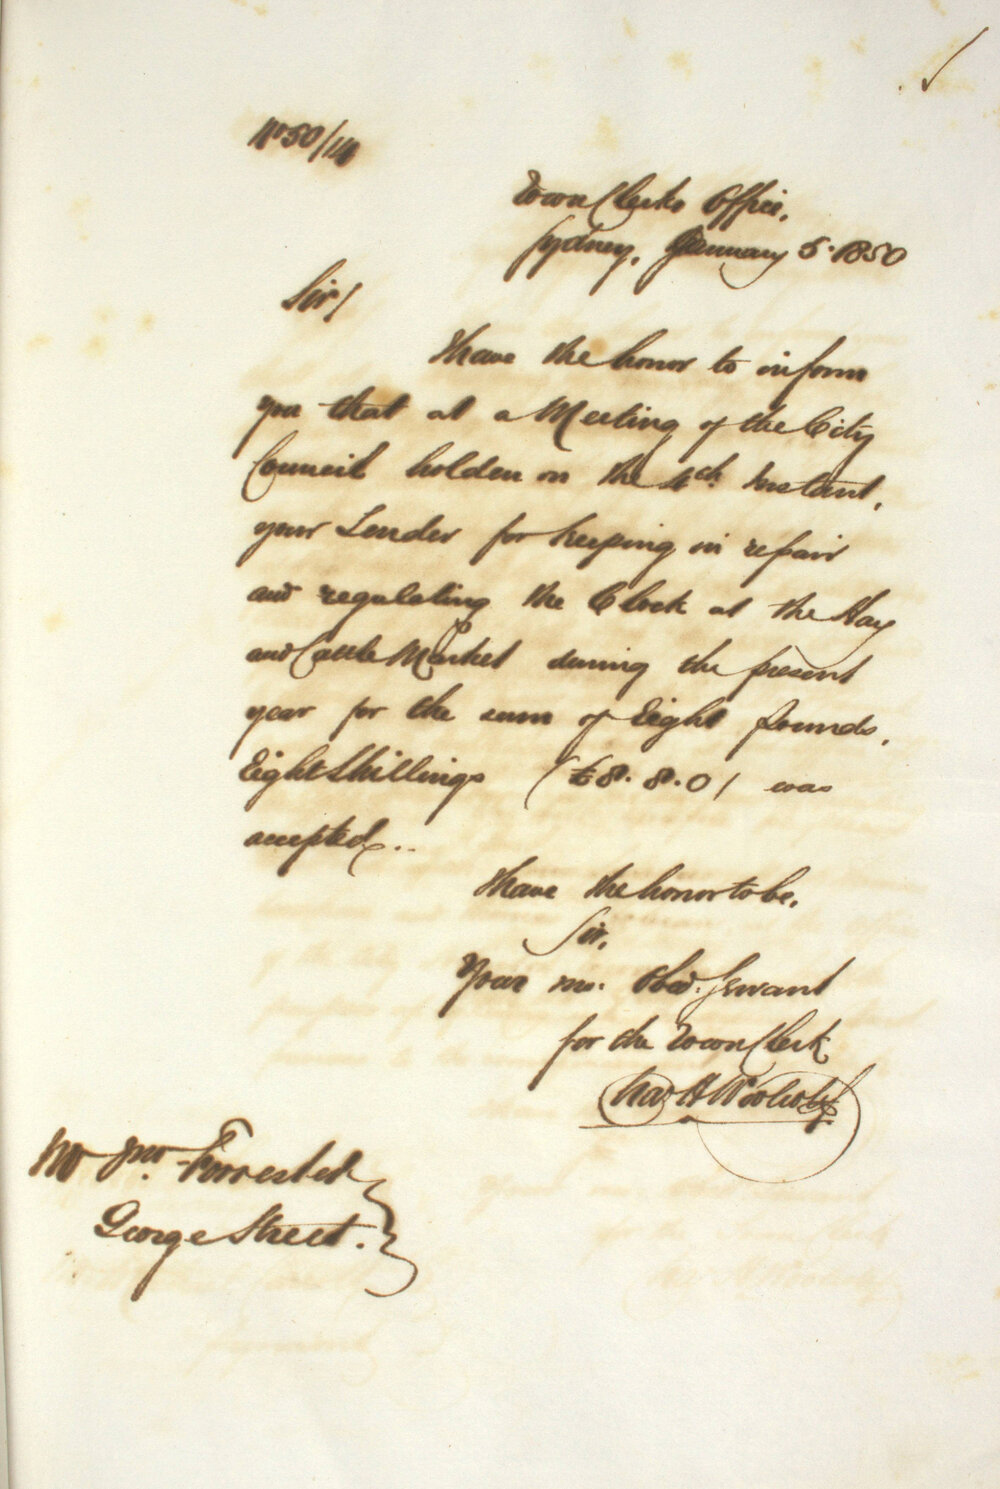 No 50/14
Town Clerks Office,
Sydney, January 5. 1850
Sir/
I have the honor to inform
you that at a Meeting of the City
Council holden on the 4th Instant,
your Tender for keeping in repair
and regulating the Clock at the Hay
and Cattle Market during the present
year for the sum of Eight pounds,
Eight Shillings (£8. 8. 0/ was
accepted..
I have the honor to be,
Sir,
Your mo. Obed. Servant
for the Town Clerk
Chas H Woolcott
Mr Jno. Forrester
George Street.